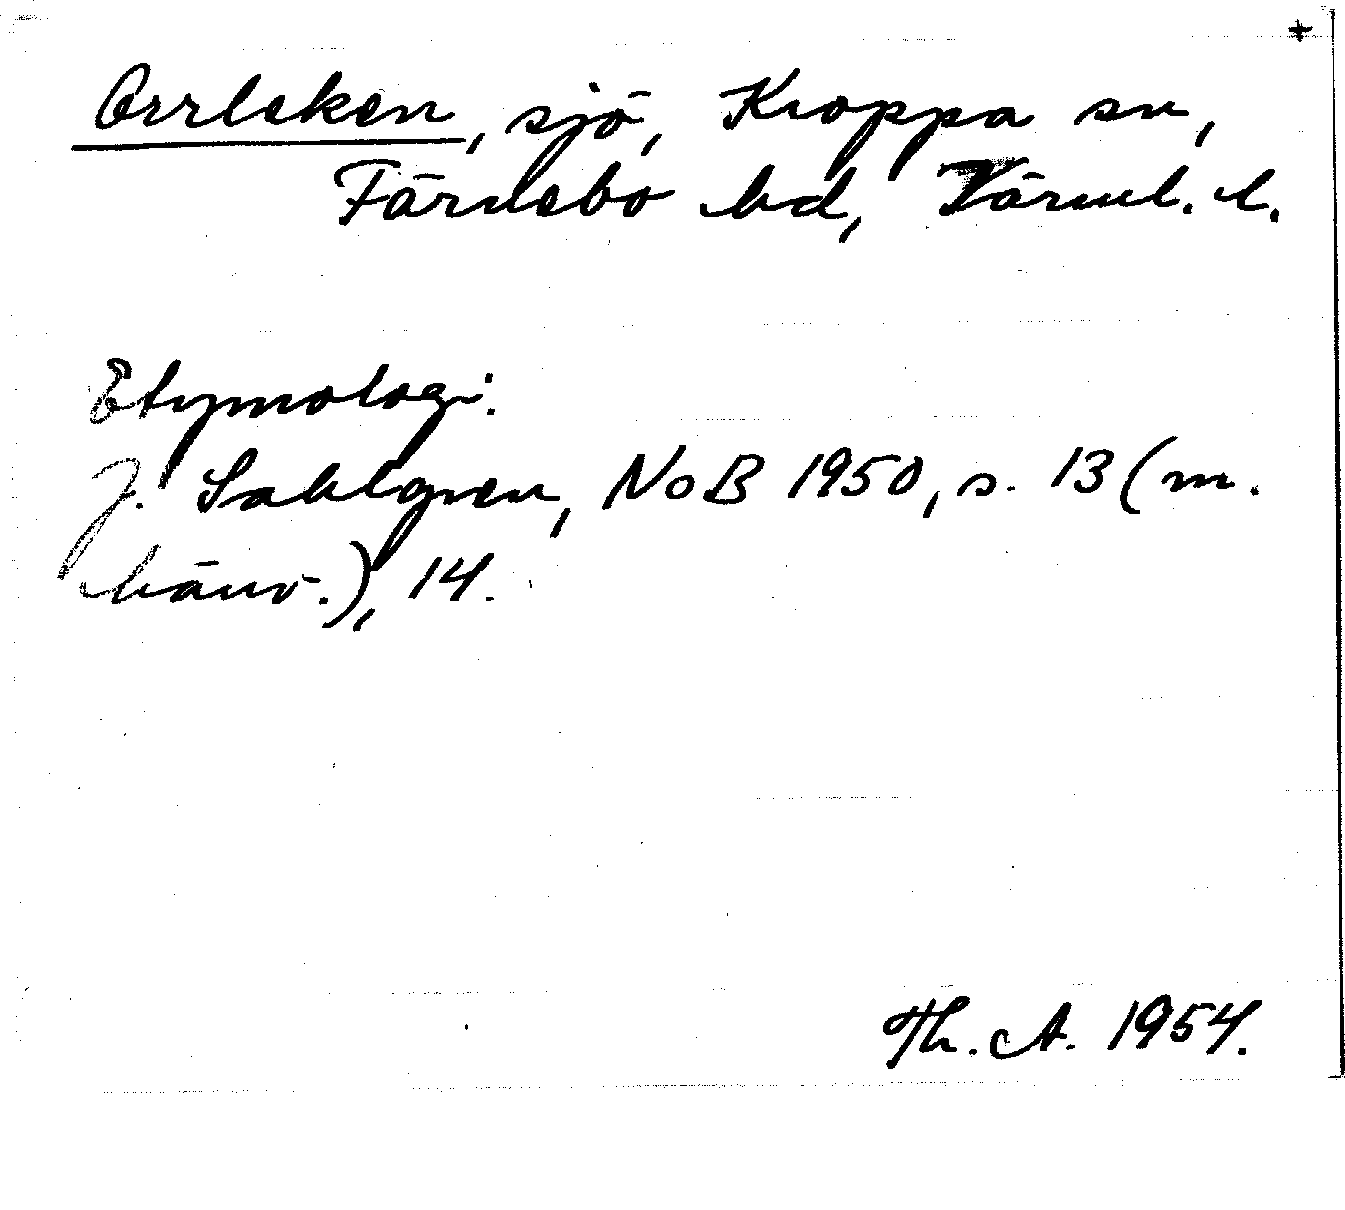 +
Orrleken, sjö, Kroppa sn,
Färnebo hd, Värml. l.
Etymologi:
J. Sahlgren, NoB 1950, s. 13 (m.
hänv.), 14.
Th. A. 1954.